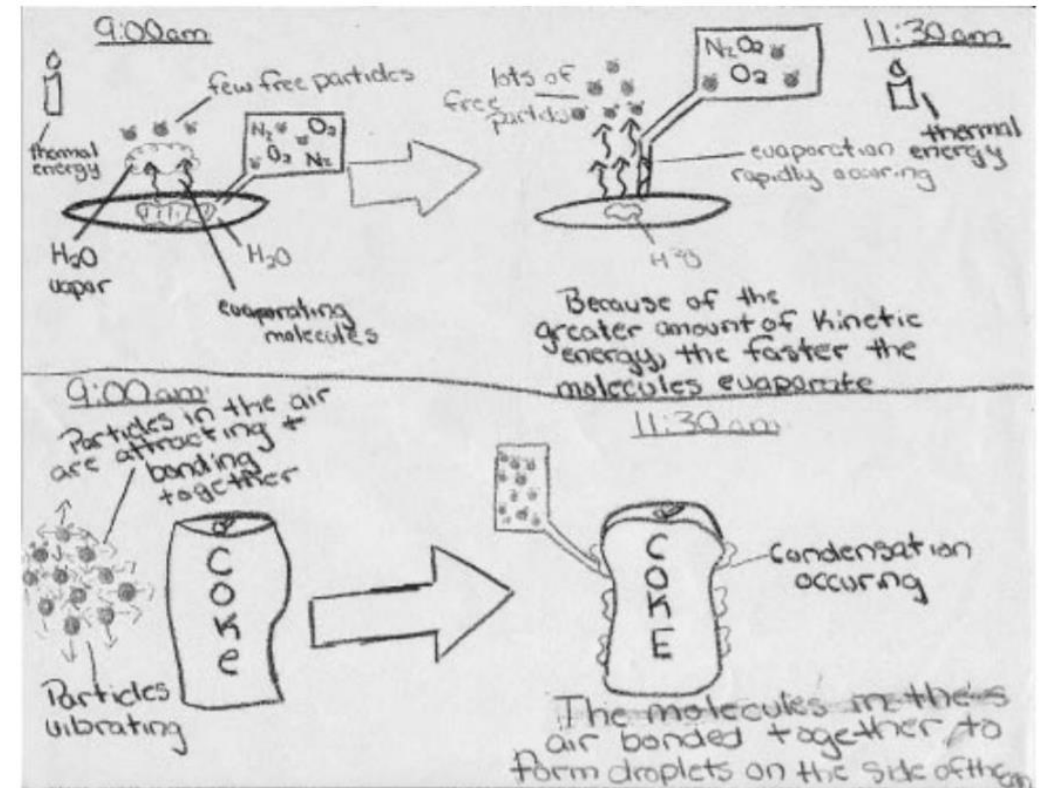 9:00am
few free particles
thermal
energy
N₂ O₂
O₂ N₂
H₂O
vapor
H₂O
evaporating
molecules
11:30am
lots of
free
N₂ O₂
O₂
thermal
energy
evaporation
rapidly occuring
Because of the
greater amount of Kinetic
energy, the faster the
molecules evaporate
9:00am
Particles in the air
are attracting +
bonding
together
COKe
Particles
vibrating
11:30am
COKE
Condensation
occuring
The molecules in the
air bonded together to
form droplets on the side of the can